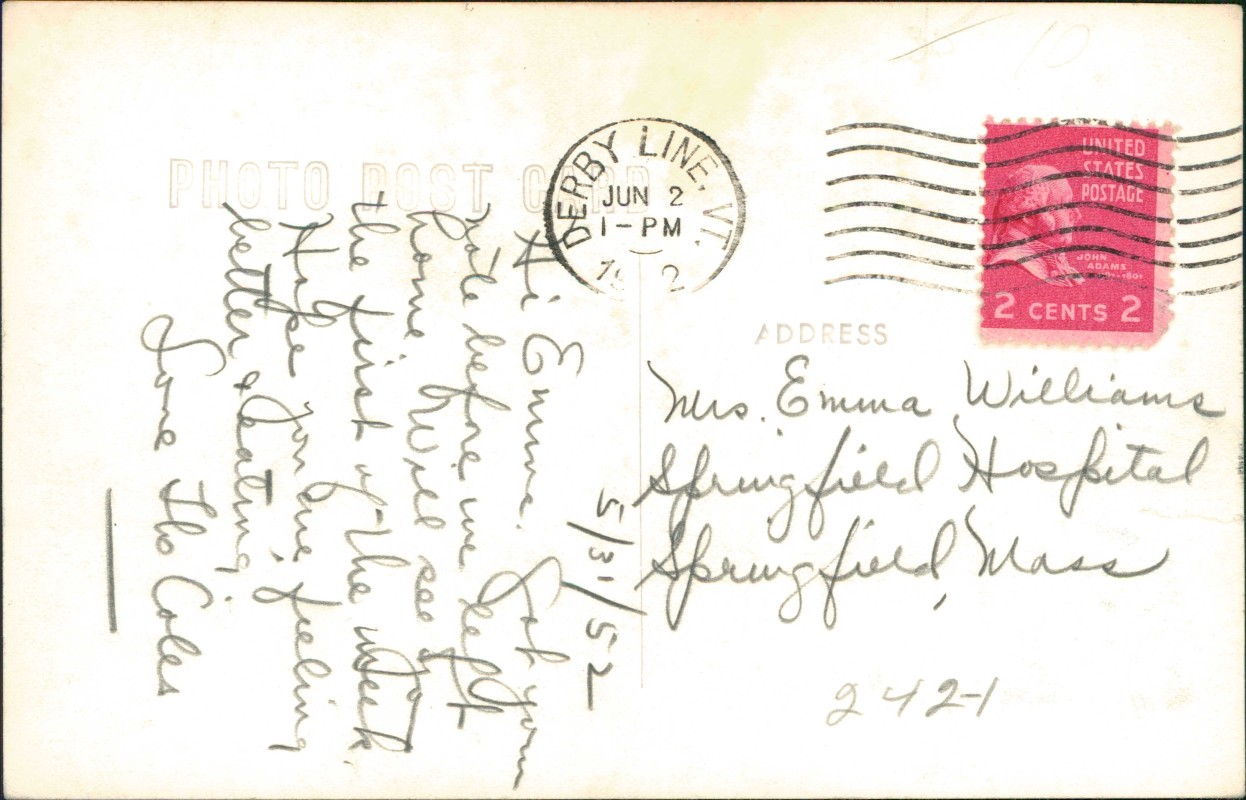 PHOTO POST CARD
DERBY LINE, VT.
JUN 2
1-PM
UNITED
STATES
POSTAGE
JOHN
ADAMS
2 CENTS 2
ADDRESS
Mrs. Emma Williams
Springfield Hospital
Springfield, Mass
242-1
5/31/52
Hi Emma. Got your
note before we left
home. Will see you
the first of the week.
Hope you are feeling
better & eating.
Love The Coles